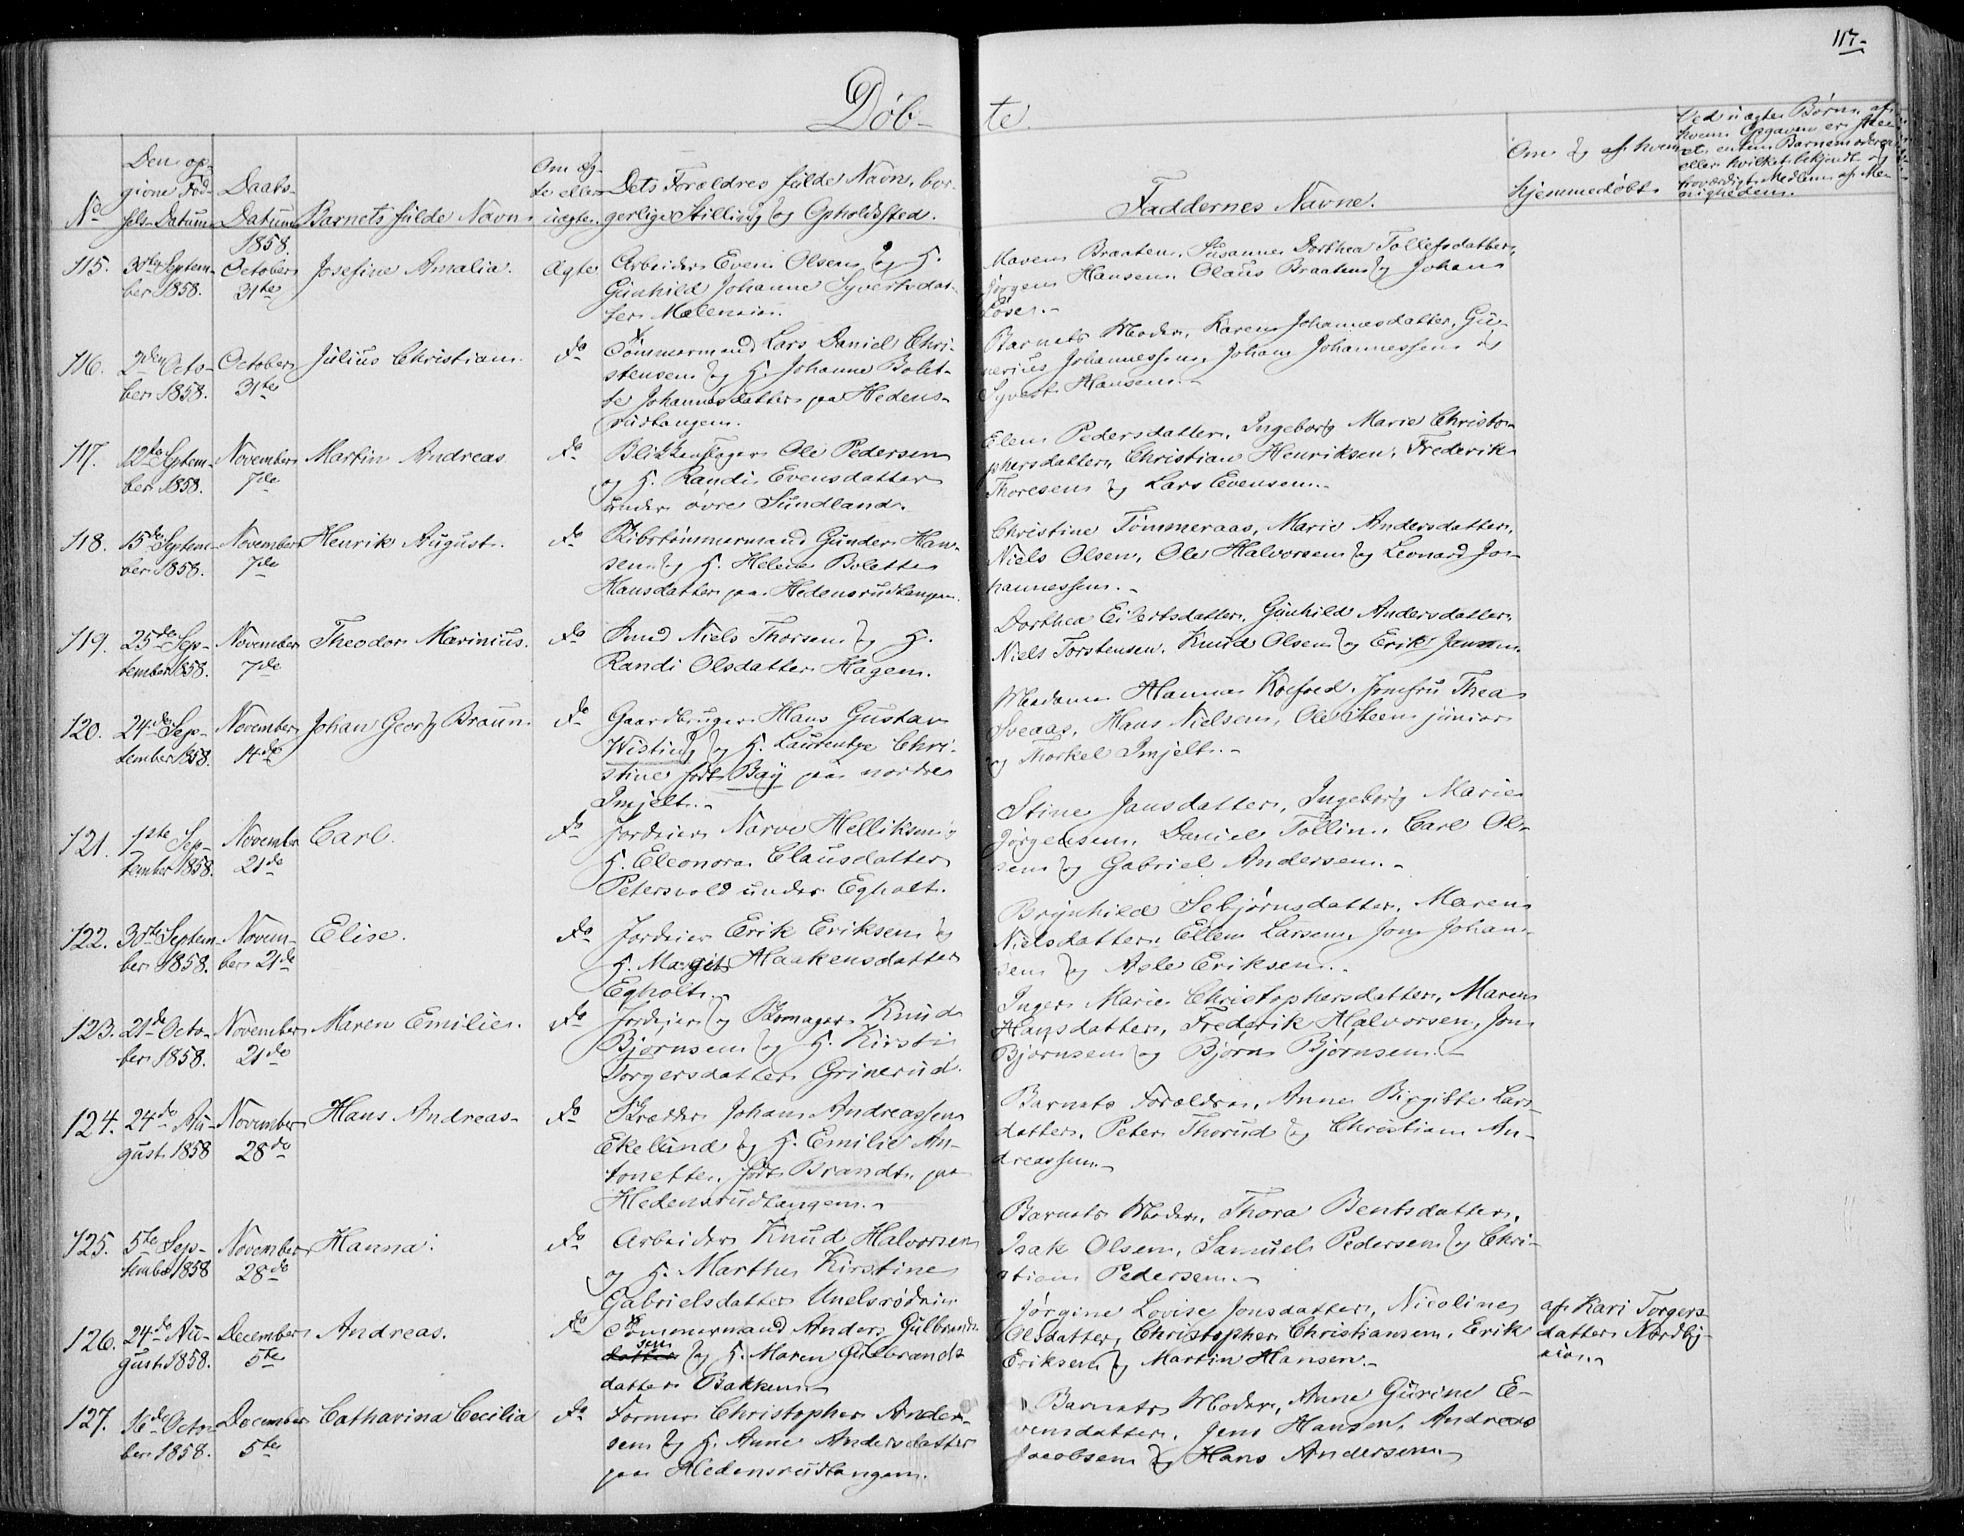 117.
Døb-te.
No
Den op-
givne Fød-
sels-Datum
Daabs-
Datum
1858.
Barnets fulde Navn
Om æg-
te eller
uægte.
Dets Forældres fulde Navn, bor-
gerlige Stilling og Opholdssted.
Faddernes Navne.
Om og af hvem
hjemmedøbt
Ved uægte Børn, af
hvem Opgaven er skee
eller hvilket bekjendt og
troværdigt Medlem af Me-
nigheden.
115. 30te Septem- October Josefine Amalia. Ægte Arbeider Even Olsen og H.
ber 1858. 31te Gunhild Johanne Syvertsdat-
ter
Maren Braaten, Susanne Dorthea Tollefsdatter,
Jørgen Hansen, Olaus Braaten og Johan
116. 2den Octo- October Julius Christian. Do Tømmermand Lars Daniel Chri-
ber 1858. 31te stensen og H. Johanne Bolet-
te Johannesdatter paa Hedens-
rudtangen.
Barnets Moder, Karen Johannesdatter, Gu-
nerius Johannessen, Johan Johannessen og
Syvert Hansen.-
117. 12te Septem- November Martin Andreas. Do Blikkenslager Ole Pedersen
ber 1858. 7de og H. Randi Evensdatter
under øvre Sundland.
Elen Pedersdatter, Ingeborg Marie Christo-
phersdatter, Christian Henriksen, Frederik
Thoresen og Lars Evensen.-
118. 15de Septem- November Henrik August. Do Skibstømmermand Gunder Han-
ber 1858. 7de sen og H. Helene Bolette
Hansdatter paa Hedensrudtangen.
Christine Tømmeraas, Marie Andersdatter,
Niels Olsen, Ole Halvorsen og Leonard Jo-
hannessen.-
119. 25de Sep- November Theodor Marinius. Do Smed Niels Thorsen og H.
tember 1858. 7de Randi Olsdatter Hagen.
Dorthea Eilertsdatter, Gunhild Andersdatter,
Niels Torstensen, Knud Olsen og Erik Jansen.
120. 24de Sep- November Johan Georg Braun. Do Gaardbruger Hans Gustav
tember 1858. 14de Wisting og H. Laurentze Chri-
stine født Bay paa nordre
Imjelt.-
Madame Hanna Koefoed, Jomfru Thea
Sveaas, Hans Nielsen, Ole Steen junior
og Thorkel Imjelt.-
121. 1ste Sep- November Carl. Do Jordeier Narve Helliksen og
tember 1858. 21de H. Eleonora Clausdatter
Petersvold under Egholt.
Stine Jansdatter, Ingeborg Marie
Jørgensen, Daniel Tollin, Carl Ol-
sen og Gabriel Andersen.-
122. 30te Septem- Novem- Elise. Do Jordeier Erik Eriksen og
ber 1858. ber 21de H. Margit Haakensdatter
Egholt.-
Brynhild Sebjørnsdatter, Maren
Nielsdatter, Ellen Larsen, Jon Johan-
sen og Asle Eriksen.-
123. 21de Octo- November Maren Emilie. Do Jordeier og Skomager Knud
ber 1858. 21de Bjørnsen og H. Kirsti
Torgersdatter Grinerud.
Inger Marie Christophersdatter, Maren
Hansdatter, Frederik Halvorsen, Jon
Bjørnsen og Bjørn Bjørnsen.-
124. 24de Au- November Hans Andreas. Do Skrædder Johan Andreassen
gust 1858 28de Ekelund og H. Emilie An-
tonette, født Brandt, paa
Hedensrudtangen.-
Barnets Forældre, Anne Birgitte Lars-
datter, Peter Thorud og Christian An-
dreassen.-
125. 5te Sep- November Hanna. Do Arbeider Knud Halvorsen
tember 1858 28de og H. Marthe Kirstine
Gabrielsdatter
Barnets Moder, Thora Bentsdatter,
Isak Olsen, Samuel Pedersen og Chri-
stian Pedersen.-
126. 24de Au- December Andreas. Do Tømmermand Anders Gulbrand-
gust 1858. 5te sen og H. Maren Gulbrands-
datter Bakken.-
Jørgine Lovise Jonsdatter, Nicoline
Olsdatter, Christopher Christiansen, Erik
Eriksen og Martin Hansen.-
af Kari Torgers-
datter
127. 16de Octo- December Catharina Cecilia Do Former Christopher Ander-
ber 1858. 5te sen og H. Anne Andersdatter
paa Hedensrudtangen.
Barnets Moder, Anne Gurine E-
vensdatter, Jens Hansen, Andreas
Jacobsen og Hans Andersen.-